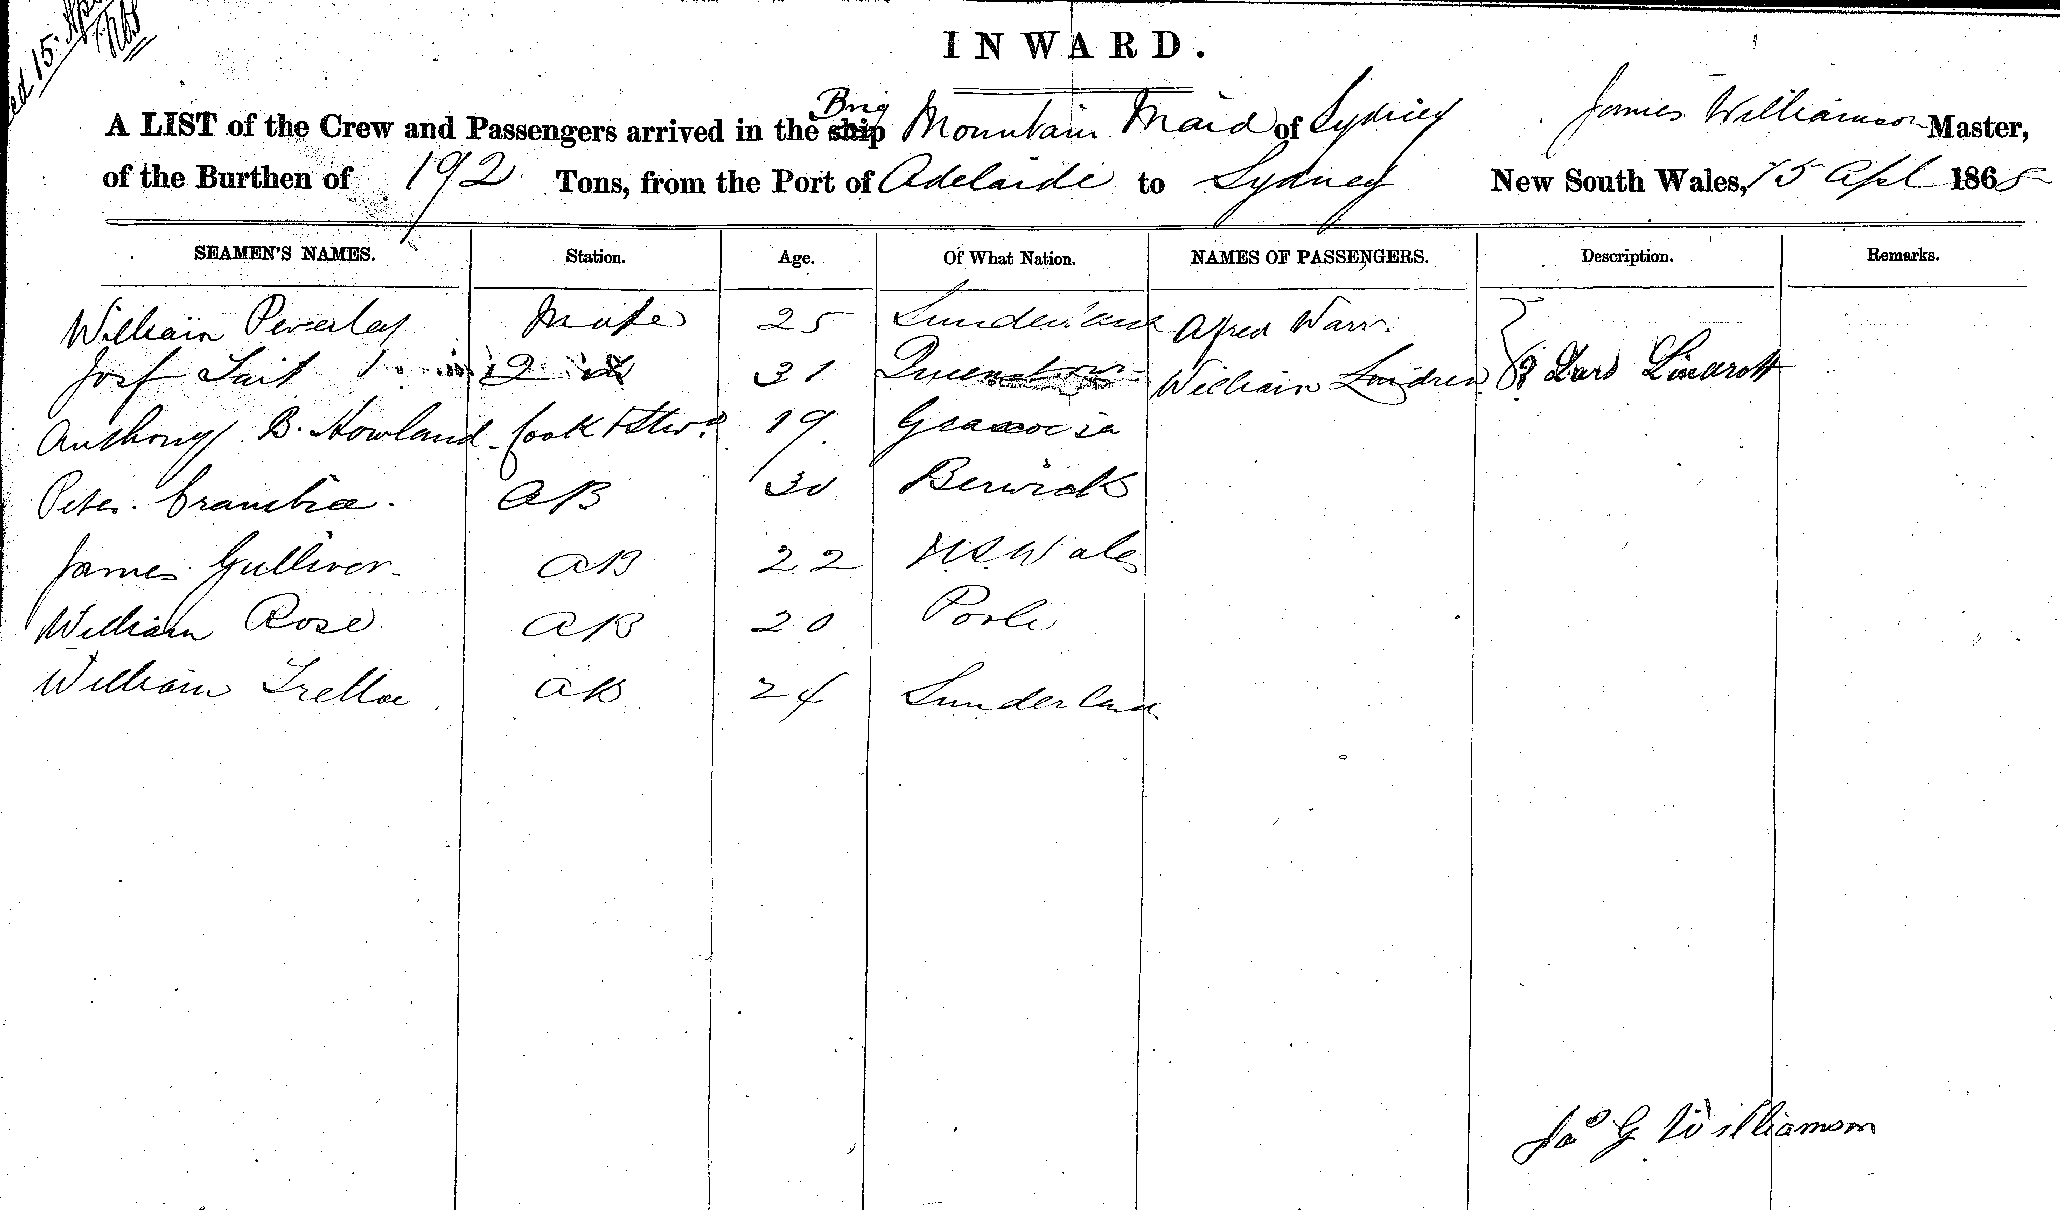 15 Apl
INWARD.
A LIST of the Crew and Passengers arrived in the Brig ship Mountain Maid of Sydney James Williamson Master,
of the Burthen of 192 Tons, from the Port of Adelaide to Sydney New South Wales, 15 Apl 1865
SEAMEN'S NAMES. Station. Age. Of What Nation. NAMES OF PASSENGERS. Description. Remarks.
William Peverley Mate 25 Sunderland Alfred Warr.
Josf Tait 2 31 Queenstown William
Anthony B. Howland Cook & Stwd 19
Peter Crambie. AB 30 Berwick
James Gulliver AB 22 N S Wales
William Rose AB 20 Poole
William Trelloe AB 24 Sunderland
Jas G Williamson